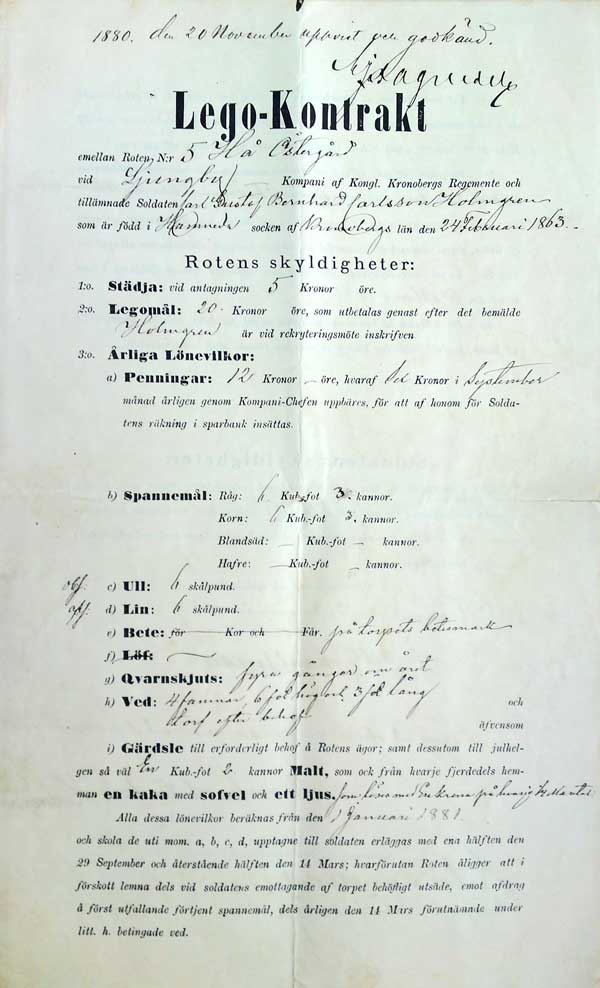 1880. den 20 November uppvist och godkänd.
Lego-Kontrakt
emellan Roten N:r 5 Hå Östergård
vid Ljungby Kompani af Kongl. Kronobergs Regemente och
tillämnade Soldaten Carl Gustaf Bernhard Carlsson Holmgren
som är född i Hamneda socken af Kronobergs län den 24 Februari 1863.
Rotens skyldigheter:
1:o. Städja: vid antagningen 5 Kronor öre.
2:o. Legomål: 20 Kronor öre, som utbetalas genast efter det bemälde
Holmgren är vid rekryteringsmöte inskrifven
3:o. Årliga Lönevilkor:
a) Penningar: 12 Kronor — öre, hvaraf Kronor i September
månad årligen genom Kompani-Chefen uppbäres, för att af honom för Solda-
tens räkning i sparbank insättas.
b) Spannemål: Råg: 6 Kub.-fot 3. kannor.
Korn: 6 Kub.-fot 3. kannor.
Blandsäd: — Kub.-fot — kannor.
Hafre: — Kub.-fot — kannor.
c) Ull: 6 skålpund.
d) Lin: 6 skålpund.
e) Bete: för — Kor och — Får. på torpets betesmark
f) Löf: —
g) Qvarnskjuts: fyra gånger om året
h) Ved: 4 famnar, 6 fot hög och 3 fot lång och
torf efter behof äfvensom
i) Gärdsle till erforderligt behof å Rotens ägor; samt dessutom till julhel-
gen så väl En Kub.-fot 2 kannor Malt, som ock från hvarje fjerdedels hem-
man en kaka med sofvel och ett ljus. som löses med En krona på hvarje 1/4 Mantal
Alla dessa lönevilkor beräknas från den 1 Januari 1881.
och skola de uti mom. a, b, c, d, upptagne till soldaten erläggas med ena hälften den
29 September och återstående hälften den 14 Mars; hvarförutan Roten åligger att i
förskott lemna dels vid soldatens emottagande af torpet behöfligt utsäde, emot afdrag
å först utfallande förtjent spannemål, dels årligen den 14 Mars förutnämnde under
litt. h. betingade ved.